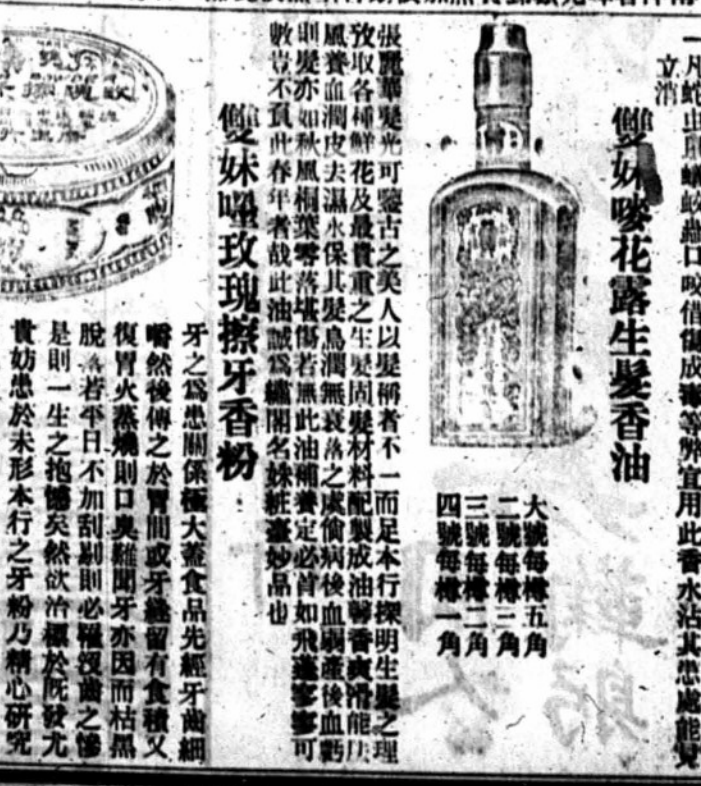 一凡蛇虫鼠蟻蛟蟲口咬借傷成等弊宜用此香水沾其患處能見
立消
雙妹嘜花露生髮香油
大號每樽五角
二號每樽三角
三號每樽二角
四號每樽一角
張麗華髮光可鑒古之美人以髮稱者不一而足本行探明生髮之理
攷取各種鮮花及最貴重之生髮固髮材料配製成油馨香爽滑能
風養血潤皮去濕永保其髮烏潤無衰落之處倘病後血弱產後血虧
則髮亦如秋風桐葉零落堪傷若無此油補養定必首如飛蓬寥寥可
數豈不負此春年者哉此油誠爲繡閣名姝粧臺妙品也
雙妹嘜玫瑰擦牙香粉
牙之爲患關係極大蓋食品先經牙齒細
嚼然後傳之於胃間或牙縫留有食積又
復胃火蒸燒則口臭難聞牙亦因而枯黑
脫落若平日不加刮剔則必罹沒齒之慘
是則一生之抱憾矣然欲治標於既發尤
貴妨患於未形本行之牙粉乃精心研究